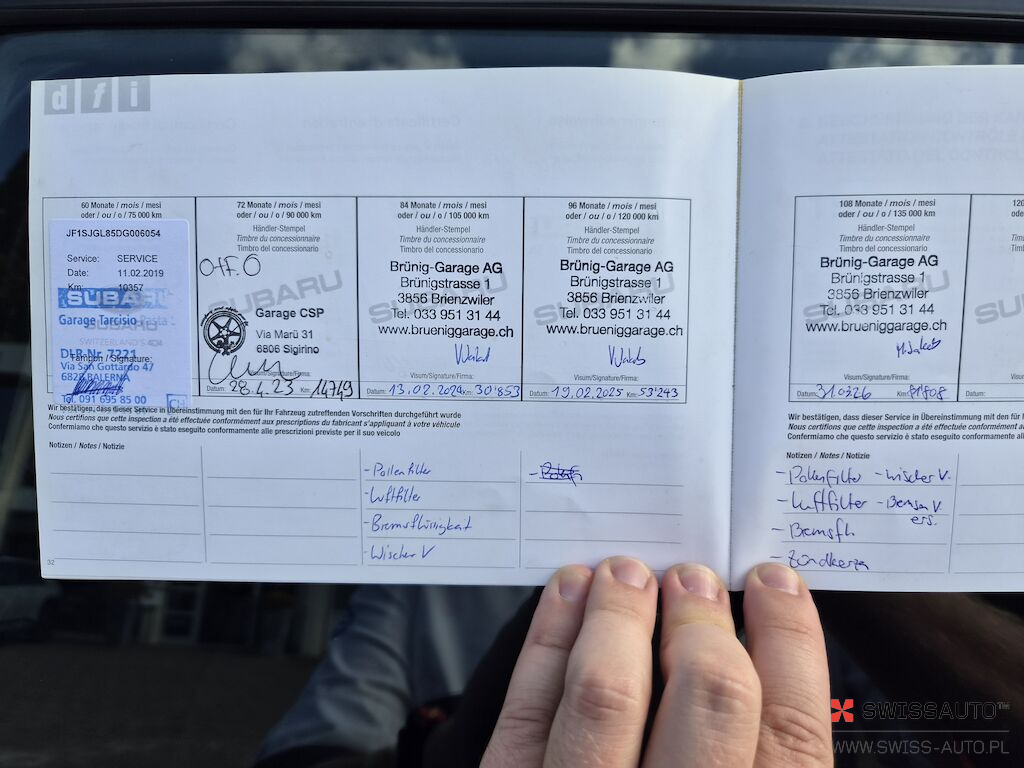 dfi
60 Monate / mois / mesi
oder / ou / o / 75 000 km
JF1SJGL85DG006054
Service: SERVICE
Date: 11.02.2019
Km: 10357
SUBARU
Garage Tarcisio Pasta
SWITZERLAND'S 4x4
DLR-Nr. 7221
Tampon / Signature:
Via San Gottardo 47
6828 BALERNA
Tel. 091 695 85 00
CH
72 Monate / mois / mesi
oder / ou / o / 90 000 km
Händler-Stempel
Timbre du concessionnaire
Timbro del concessionario
SUBARU
Garage CSP
Via Marü 31
6806 Sigirino
Datum: 28.4.23 Km: 14749
84 Monate / mois / mesi
oder / ou / o / 105 000 km
Händler-Stempel
Timbre du concessionnaire
Timbro del concessionario
SUBARU
Brünig-Garage AG
Brünigstrasse 1
3856 Brienzwiler
Tel. 033 951 31 44
www.brueniggarage.ch
Visum/Signature/Firma:
Datum: 13.02.2024 Km: 30'853
96 Monate / mois / mesi
oder / ou / o / 120 000 km
Händler-Stempel
Timbre du concessionnaire
Timbro del concessionario
SUBARU
Brünig-Garage AG
Brünigstrasse 1
3856 Brienzwiler
Tel. 033 951 31 44
www.brueniggarage.ch
Visum/Signature/Firma:
Datum: 19.02.2025 Km: 53'243
Wir bestätigen, dass dieser Service in Übereinstimmung mit den für Ihr Fahrzeug zutreffenden Vorschriften durchgeführt wurde
Nous certifions que cette inspection a été effectuée conformément aux prescriptions du fabricant s'appliquant à votre véhicule
Confermiamo che questo servizio è stato eseguito conformamente alle prescrizioni previste per il suo veicolo
Notizen / Notes / Notizie
- Pollenfilter
- Luftfilter
- Bremsflüssigkeit
- Wischer V
32
108 Monate / mois / mesi
oder / ou / o / 135 000 km
Händler-Stempel
Timbre du concessionnaire
Timbro del concessionario
SUBARU
Brünig-Garage AG
Brünigstrasse 1
3856 Brienzwiler
Tel. 033 951 31 44
www.brueniggarage.ch
Visum/Signature/Firma:
Datum: 31.03.26 Km: 81'808
Wir bestätigen, dass dieser Service in Übereinstimmung mit den für
Nous certifions que cette inspection a été effectuée conformément au
Confermiamo che questo servizio è stato eseguito conformamente alle
Notizen / Notes / Notizie
- Pollenfilter - Wischer V.
- Luftfilter - Bremsen V.
ers.
- Bremsfl.
- Zündkerzen
SWISSAUTO™
WWW.SWISS-AUTO.PL